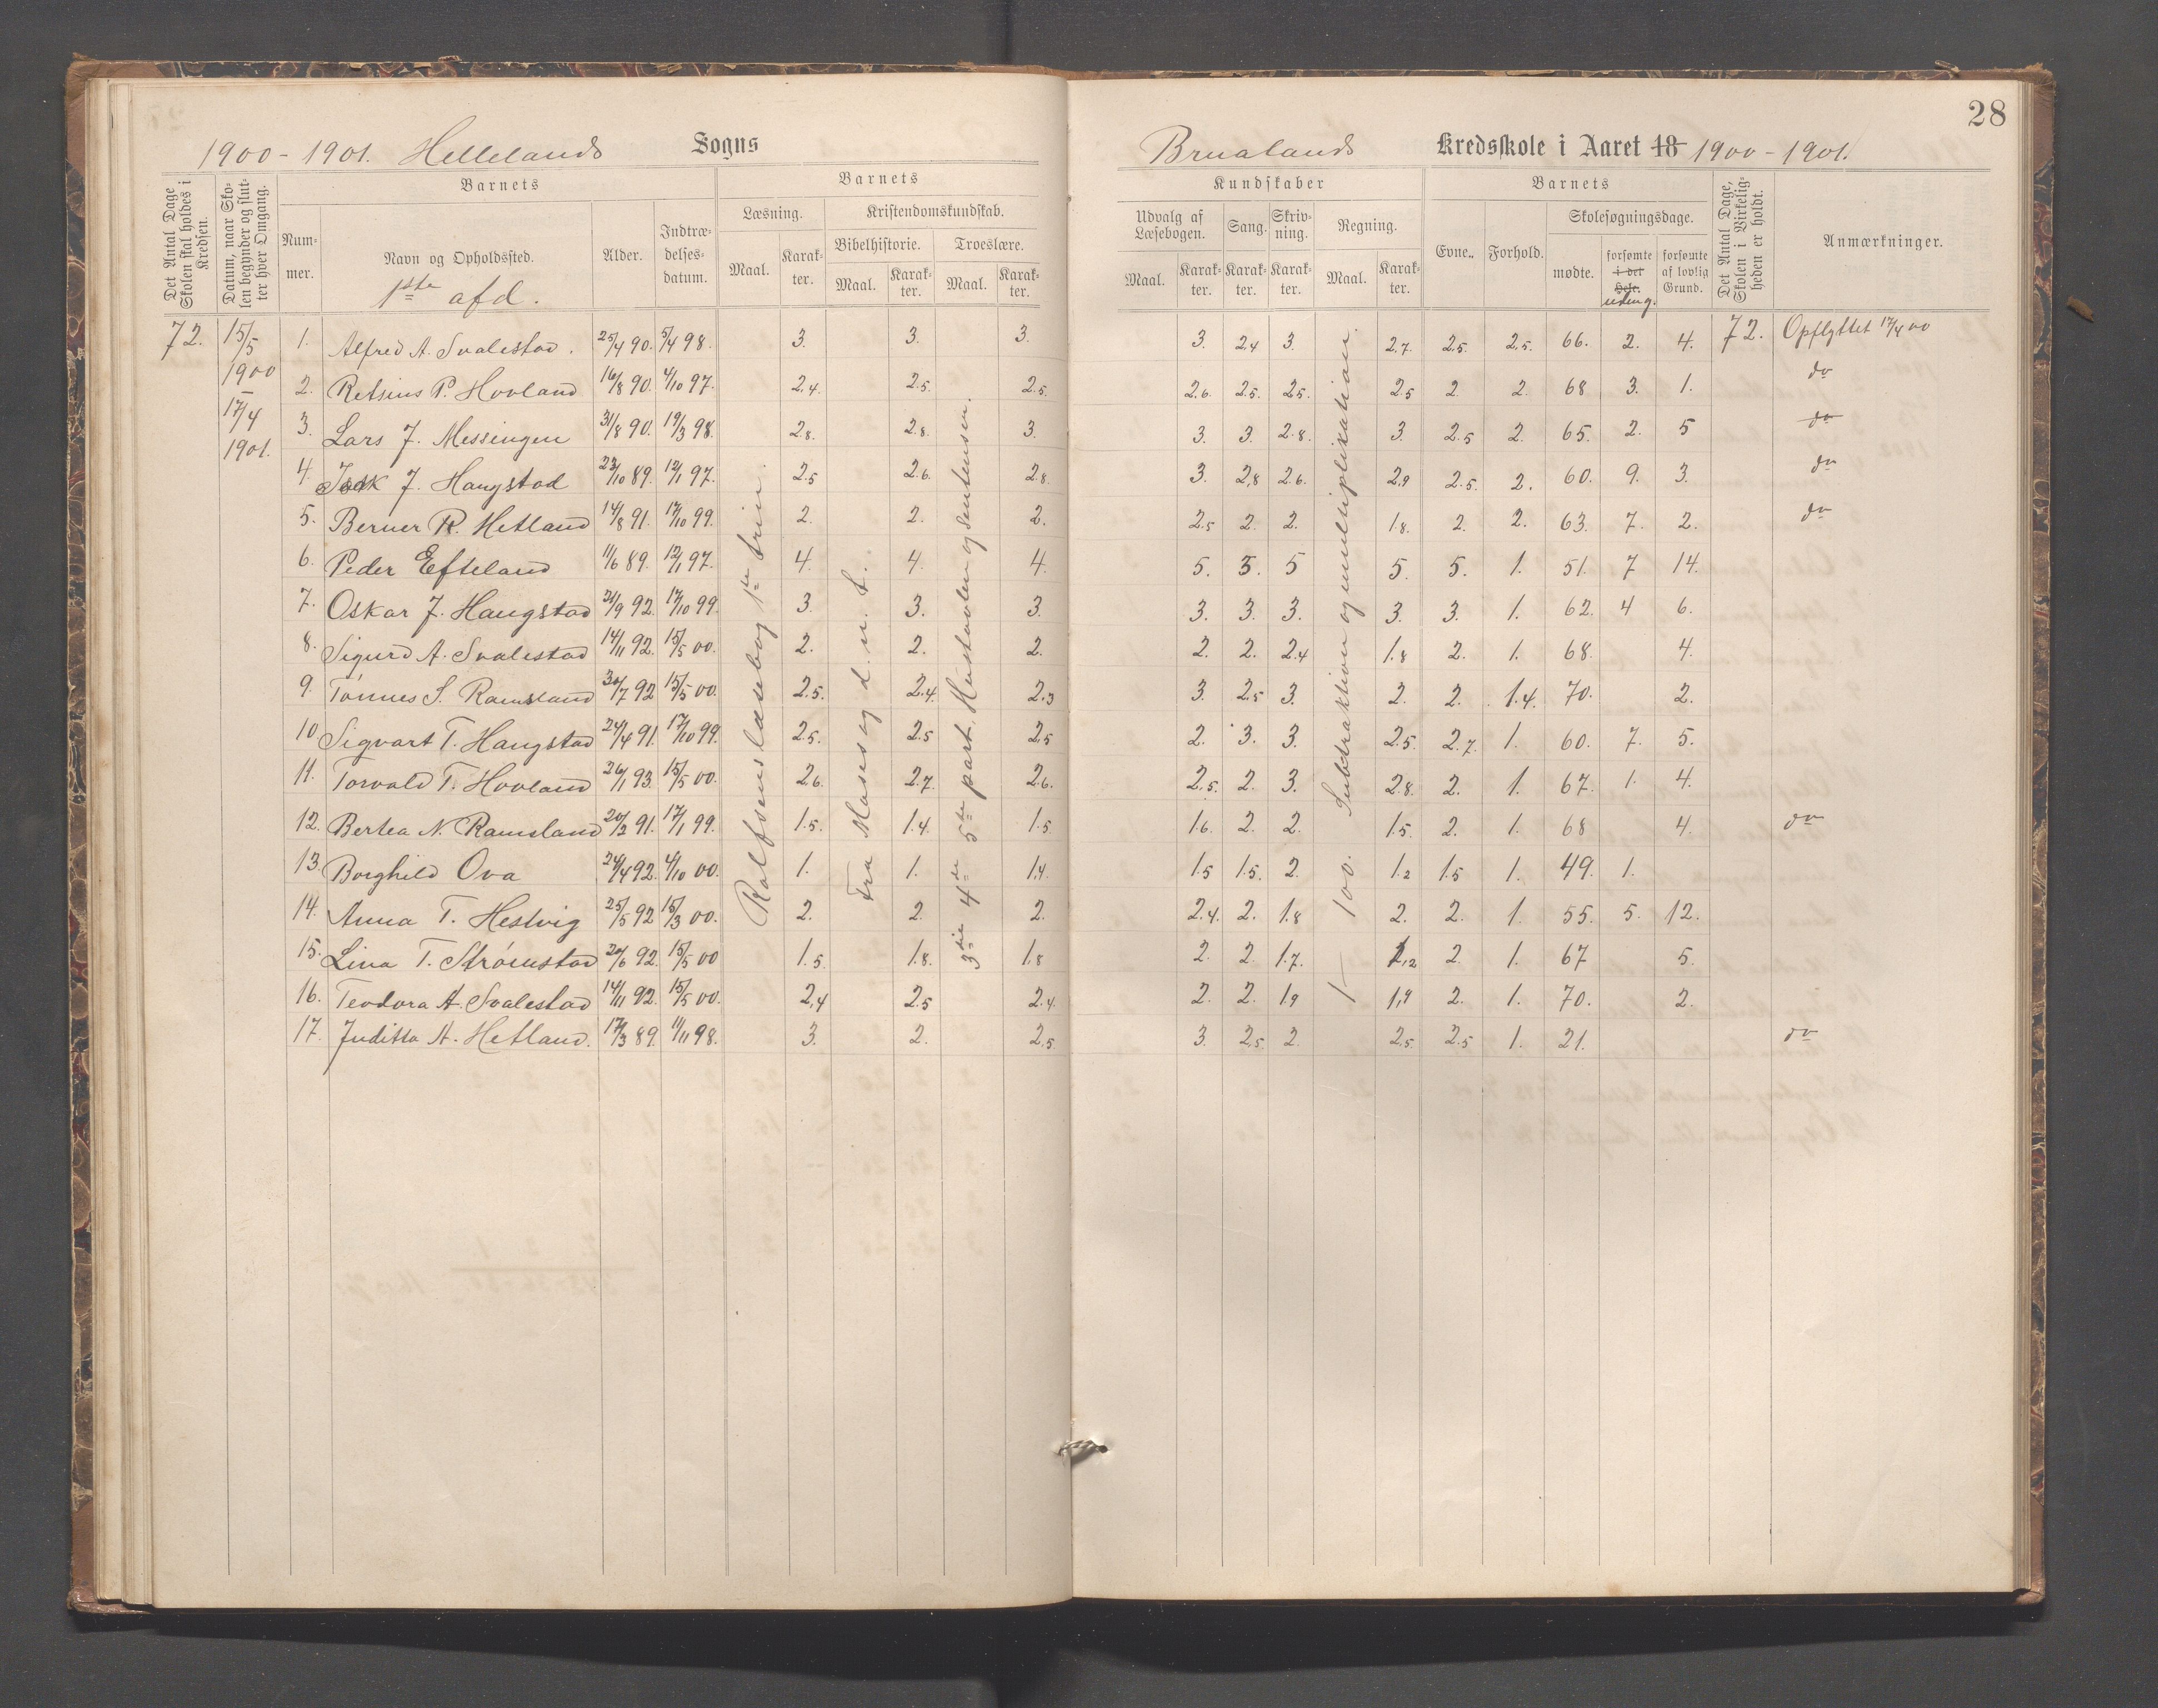 28
1900-1901. Hellelands Sogns Brualands Kredsskole i Aaret 18 1900-1901.
Det Antal Dage Skolen skal holdes i Kredsen.
Datum, naar Skolen begynder og slutter hver Omgang.
Barnets
Nummer.
Navn og Opholdssted.
1ste afd.
Alder.
Indtrædelsesdatum.
Barnets
Læsning.
Maal. Karakter.
Kristendomskundskab.
Bibelhistorie. Troeslære.
Maal. Karakter. Maal. Karakter.
Kundskaber
Udvalg af Læsebogen. Sang. Skrivning. Regning.
Maal. Karakter. Karakter. Karakter. Maal. Karakter.
Barnets
Evne. Forhold.
Skolesøgningsdage.
mødte. forsømte i det Hele. uden g. forsømte af lovlig Grund.
Det Antal Dage, Skolen i Virkeligheden er holdt.
Anmærkninger.
72. 15/5 1900 – 17/4 1901.
Rolfsens læsebog 1ste trin.
Fra Moses og d. n. t.
3die 4de 5te part. Hustavlen og sentensen.
1–100. Subtraktion og multiplikation.
1. Alfred A. Svalestad. 25/4 90. 5/4 98. 3. 3. 3. 3. 2,4 3. 2,7. 2,5. 2,5. 66. 2. 4. 72. Opflyttet 17/4 00
2. Retsius P. Hovland 16/8 90. 4/10 97. 2,4. 2,5. 2,5. 2,6. 2,5. 2,5. 2,5 2. 2. 68 3. 1. do
3. Lars J. Messingen 31/8 90. 19/3 98. 2,8. 2,8. 3. 3. 3. 2,8. 3. 2,5 2. 65. 2. 5 do
4. J. Haugstad 23/10 89. 12/1 97. 2,5 2,6. 2,8. 3. 2,8 2,6. 2,9 2,5. 2. 60. 9. 3. do
5. Berner R. Hetland 14/8 91. 17/10 99. 2. 2. 2. 2,5 2. 2. 1,8. 2. 2. 63. 7. 2. do
6. Peder Efteland 11/6 89. 12/1 97. 4. 4. 4. 5. 3. 5 5. 5. 1. 51. 7 14.
7. Oskar J. Haugstad 21/9 92. 17/10 99. 3. 3. 3. 3. 3. 3. 3. 3. 1. 62. 4 6.
8. Sigurd A. Svalestad 14/11 92. 15/5 00. 2. 2. 2. 2. 2. 2,4 1,8 2. 1. 68. 4.
9. Tønnes S. Ramsland 30/7 92 15/5 00. 2,5. 2,4. 2,3 3. 2,5 3. 2. 2. 1,4. 70. 2.
10 Sigvart T. Haugstad 24/4 91. 17/10 99. 2,5. 2,5 2,5 2. 3. 3. 2,5. 2,7. 1. 60. 7. 5.
11. Torvald T. Hovland 26/1 93. 15/5 00. 2,6. 2,7. 2,6. 2,5. 2. 3. 2,8. 2. 1. 67. 1. 4.
12. Bertea N. Ramsland 20/2 91. 17/1 99. 1,5. 1,4. 1,5. 1,6. 2. 2. 1,5. 2. 1. 68 4. do
13. Borghild Ova 24/4 92. 4/10 00. 1. 1. 1,4. 1,5 1,5. 2. 1,2 1,5 1. 49. 1.
14. Anna T. Hestvig 25/5 92 15/3 00. 2. 2. 2. 2,4. 2. 1,8 2. 2. 1. 55. 5. 12.
15. Lina T. Strømstad 20/6 92. 15/5 00 1,5. 1,8. 1,8 2. 2. 1,7. 1,2 2. 1. 67 5.
16. Teodora A. Svalestad 14/11 92. 15/5 00. 2,4 2,5 2,4. 2. 2. 1,9 1,9 2. 1. 70. 2.
17. Juditta A. Hetland. 17/3 89. 11/11 98. 3. 2. 2,5. 3. 2,5. 2. 2,5. 2,5 1. 21. do